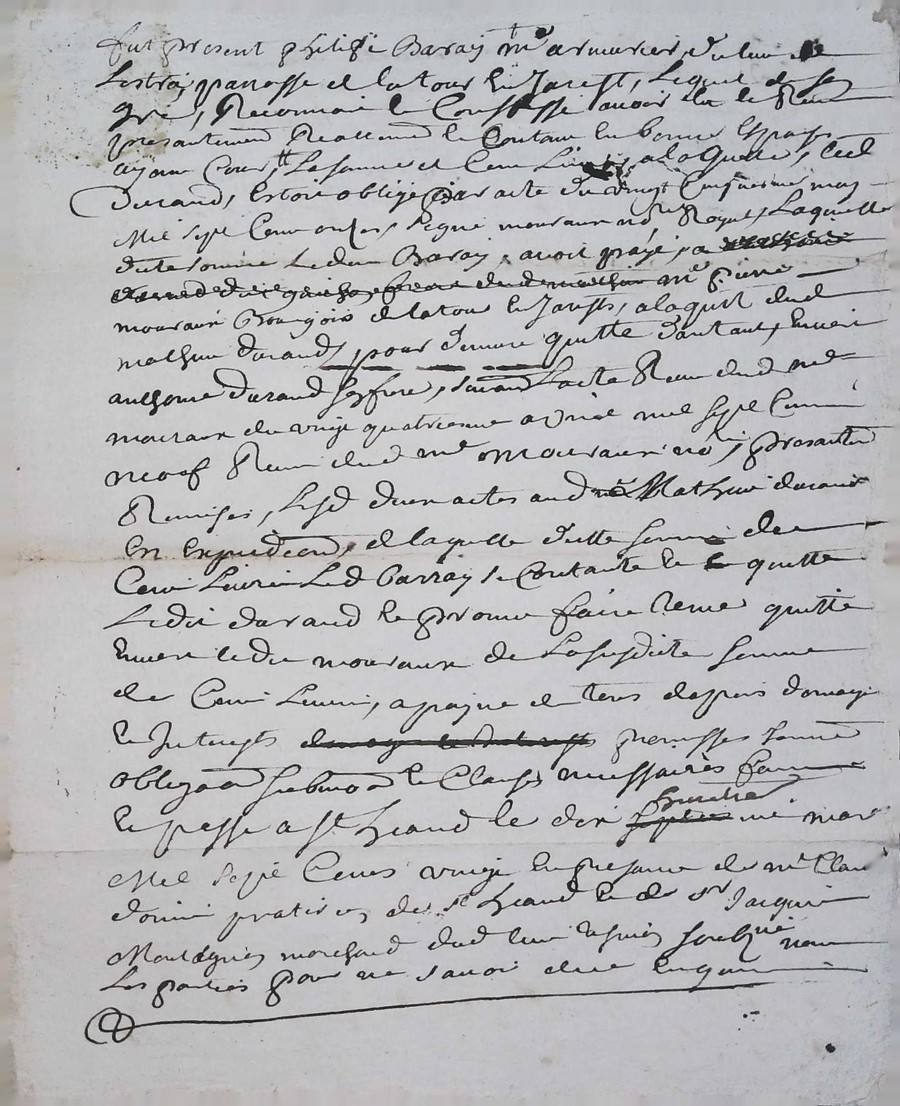 fut present philipe Baray me armurier, du lieu de
Lestra, parrosse et latour en Jarest, Lequel de son
gré, Reconnoi et Confesse avoir
presantement Reallement et Contant en bonne Espesse
ayant Cours, La somme et Cent Livres, a laquelle
Durand, Estoit obligé par acte du vingt may
Mil sept Cent onse, signé mouraux nore Royal, Laquelle
ditte somme Ledit Baray, avoit payé, a
me pierre
mouraux Bourgois de latour en Jarests, a laquit dud
mathieu durand, pour demeure quitte dautant, Envers
anthoine Durand son frere, suivant Lacte Receu dud me
mouraux du vingt quatriesme avriel mil sept Cent
neof Receu dud me mouraux nore, presantem
Remises, Lesd deux actes aud Mathieu durand
En Expedeon, de laquelle ditte somme de
Cent Livres Led Barray se Contante et quitte
Ledit durand et promet faire tenir quitte
Envers ledit mouraux de La susditte somme
de Cent Livres, a payne de tous despens domage
et Interests domage et Interests promesses
obligaon soubmion et Clauses necessaires fait
et passe a st heand le dix huictie me mar
Mil sept Cents vingt En presance de me Clau
praticien de st heand et de sr Jacques
Montagnier marchand dud lieu tesmoins soubsigné non
Les parties pour ne savoir de ce Enquis